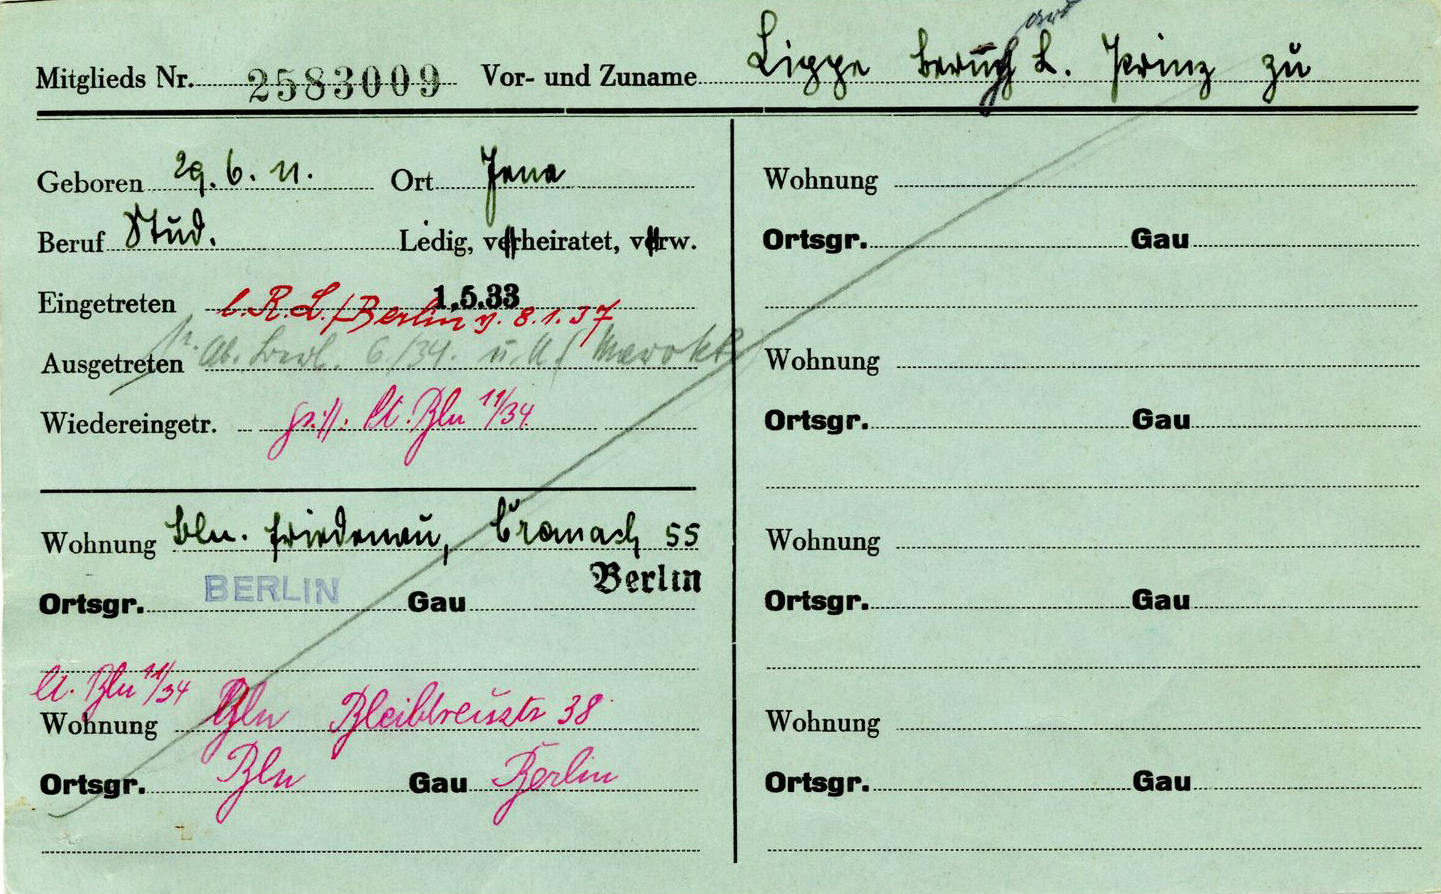 Mitgliedś Nr. 2583009 Vor- und Zuname Lippe Bernh L. Prinz zu
Geboren 29. 6. 11. Ort Jena
Beruf Stud. Ledig, verheiratet, verw.
Eingetreten 1.5.33
l. R. L./Berlin v. 8.1.37
Ausgetreten 6./34. u.
Wiedereingetr. lt. Bln 11/34
Wohnung Bln. Friedenau, Cranach 55
Ortsgr. BERLIN Gau Berlin
lt. Bln 11/34
Wohnung Bln Bleibtreustr 38
Ortsgr. Bln Gau Berlin
Wohnung
Ortsgr. Gau
Wohnung
Ortsgr. Gau
Wohnung
Ortsgr. Gau
Wohnung
Ortsgr. Gau